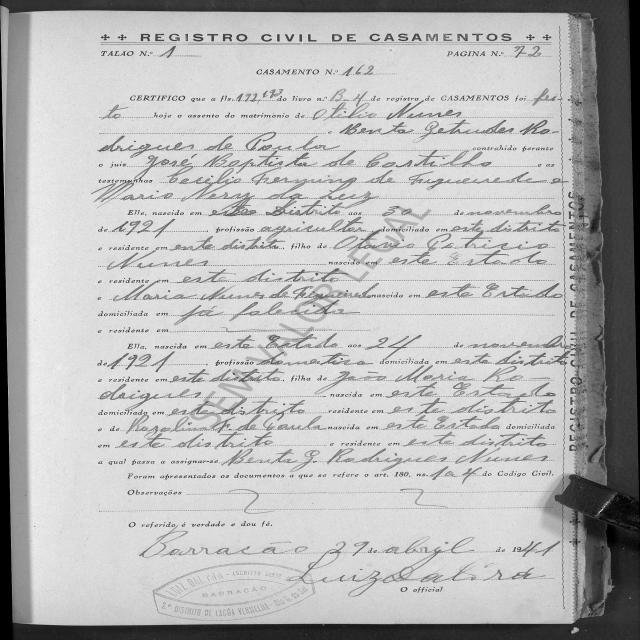 REGISTRO CIVIL DE CASAMENTOS
TALÃO N.º 1 PAGINA N.º 72
CASAMENTO N.º 162
CERTIFICO que a fls. 172, 173 do livro n.º B-4 de registro de CASAMENTOS foi fei-
to hoje o assento do matrimonio de Otilio Nunes
e Benta Getrudes Ro-
drigues de Paula contrahido perante
o juiz José Baptista de Castilho e as
testemunhas Cecilio Fermino de Figueiredo e
Mario Nery da Luz
Elle, nascido em este distrito aos 30 de novembro
de 1921, profissão agricultor domiciliado em este distrito
e residente em este distrito, filho de Otavio Patricio
Nunes nascido em este Estado
e residente em este distrito
e Maria Nunes de nascida em este Estado
domiciliada em já falecida
e residente em
Ella, nascida em este Estado aos 24 de novembro
de 1921, profissão domestica domiciliada em este distrito
e residente em este distrito, filha de João Maria Ro-
drigues nascido em este Estado
domiciliado em este distrito residente em este distrito
e de F. de Paula nascida em este Estado domiciliada
em este distrito e residente em este distrito
a qual passa a assignar-se Benta G. Rodrigues Nunes
Foram apresentados os documentos a que se refere o art. 180, ns. 1 a 4 do Codigo Civil.
Observações
O referido é verdade e dou fé.
Barracão 29 de abril de 1941
Luiz
O official
BARRACÃO
2.º DISTRITO DE LAGÔA VERMELHA
SEM VALOR LEGAL
REGISTRO CIVIL DE CASAMENTOS